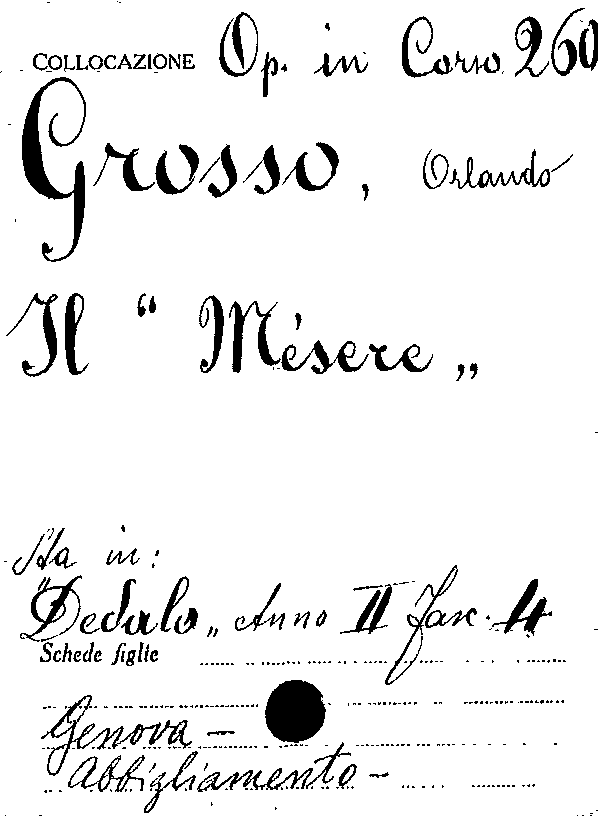 COLLOCAZIONE Op. in Corso 260
Grosso, Orlando
Il “ Mésere „
Sta in:
"Dedalo„ Anno II Fasc. 4
Schede figlie
Genova –
Abbigliamento –